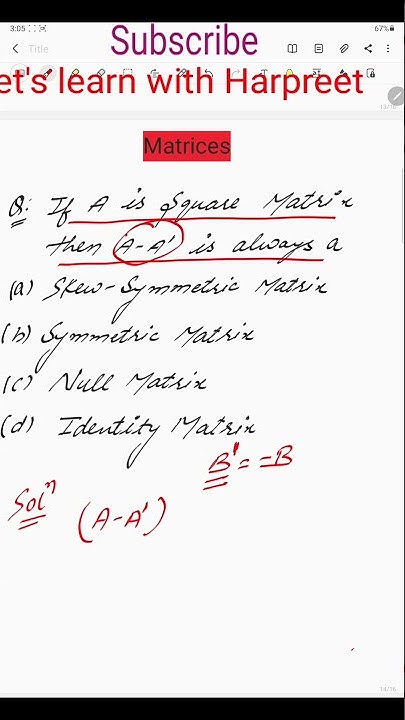 3:05
67%
Subscribe
Title
et's learn with Harpreet
13/16
Matrices
Q: If A is Square Matrix
then (A-A') is always a
(a) Skew-Symmetric Matrix
(b) Symmetric Matrix
(c) Null Matrix
(d) Identity Matrix
B' = -B
Solⁿ (A-A')
14/16